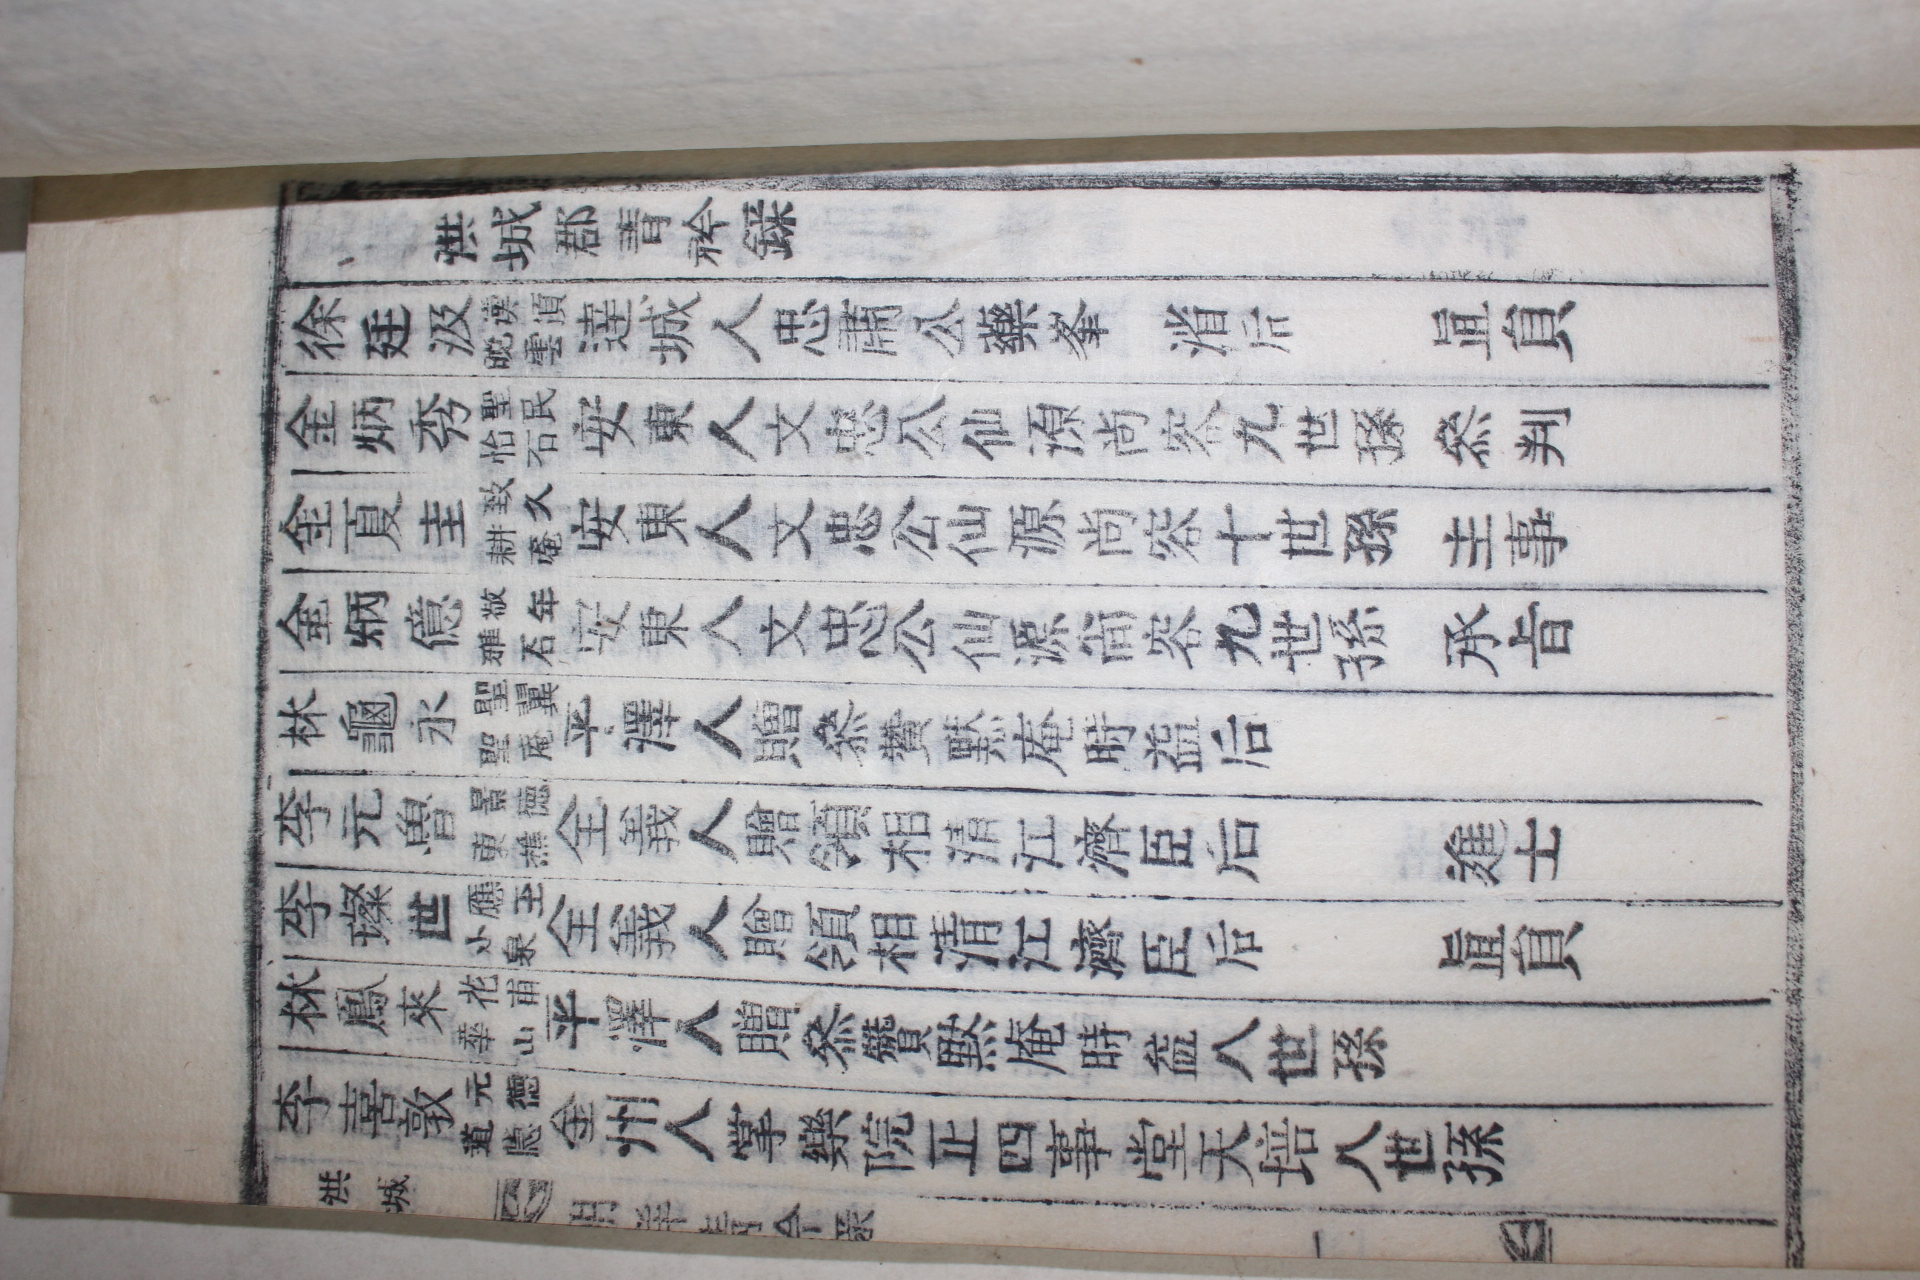 洪城郡青衿錄
徐廷汲 漢湏 晩雲 達城人忠肅公藥峯 渻后 直員
金炳秀 聖民 怡石 安東人文忠公仙源尚容九世孫 參判
金夏圭 致久 耕庵 安東人文忠公仙源尚容十世孫 主事
金炳億 敬年 雅石 安東人文忠公仙源尚容九世孫 承旨
林龜永 聖翼 聖庵 平澤人贈參贊默庵時益后
李元魯 景德 東樵 全義人贈領相清江濟臣后 進士
李璨世 應玉 小泉 全義人贈領相清江濟臣后 直員
林鳳來 花甫 華山 平澤人贈參贊默庵時益八世孫
李喜敦 元德 道隱 金州人掌樂院正四事堂天培八世孫
洪城